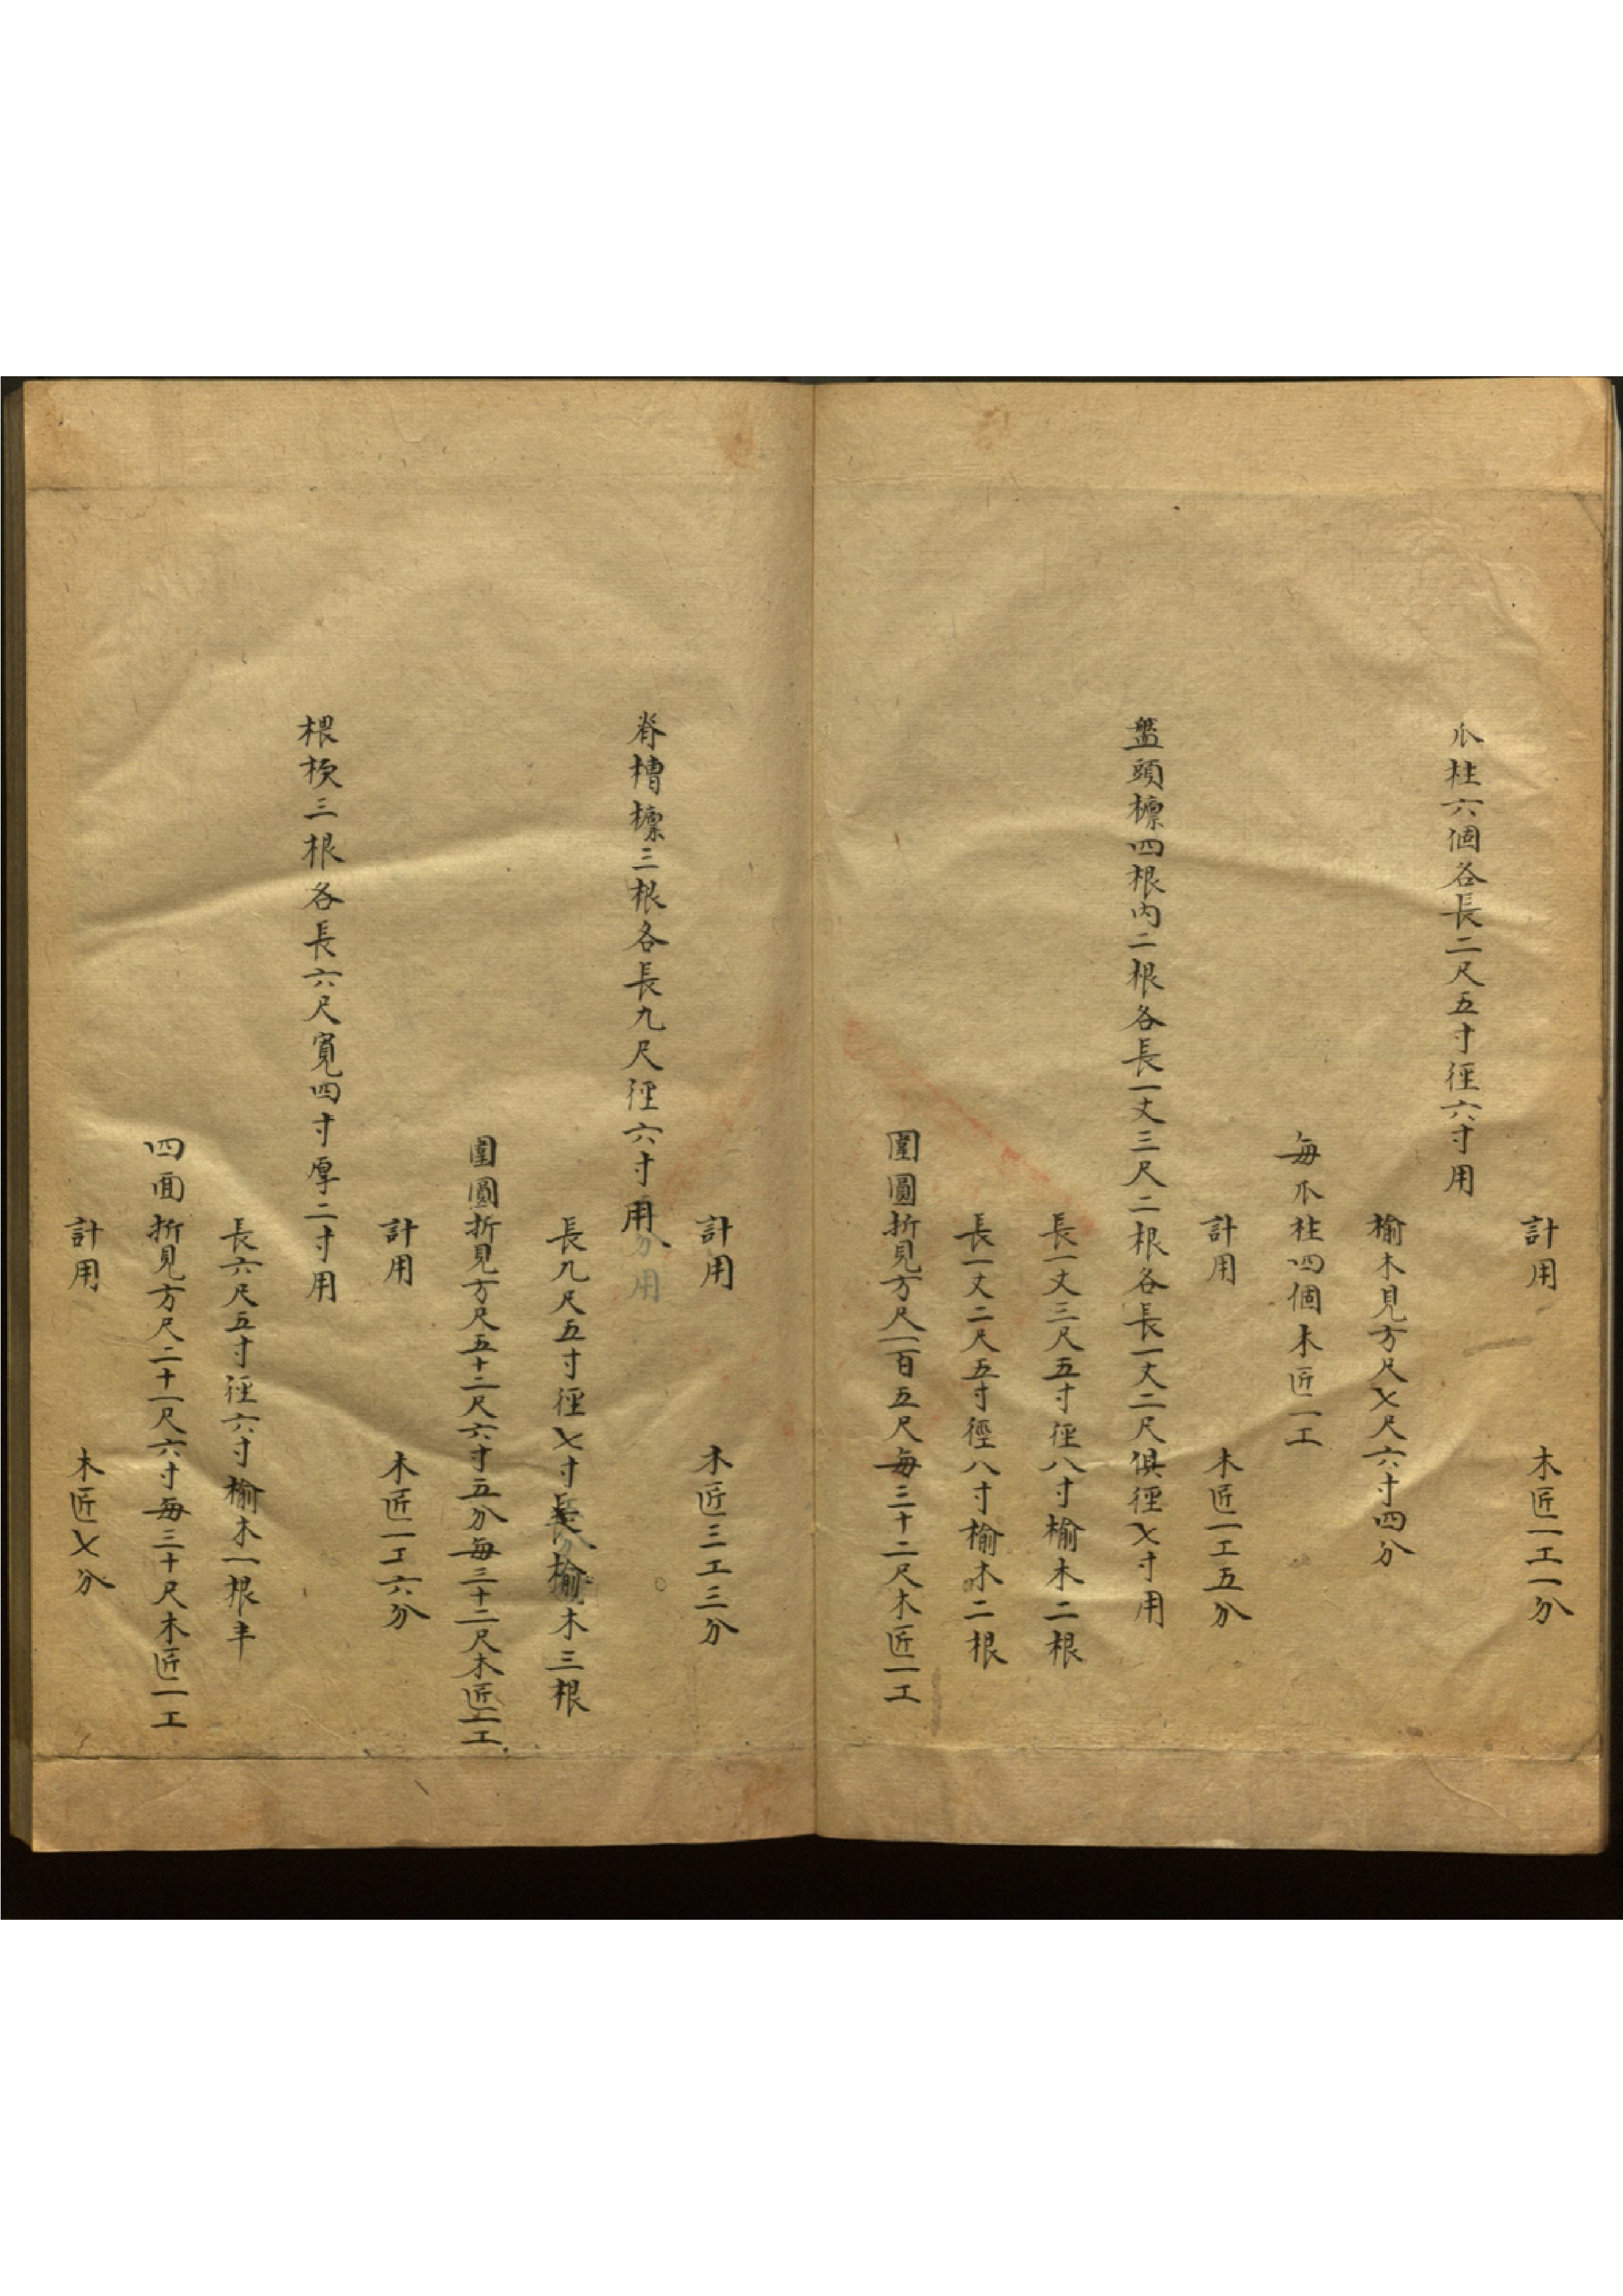 計用 木匠一工一分
爪柱六個各長二尺五寸徑六寸用
榆木見方尺七尺六寸四分
每爪柱四個木匠一工
計用 木匠一工五分
盤頭檁四根內二根各長一丈三尺二根各長一丈二尺俱徑七寸用
長一丈三尺五寸徑八寸榆木二根
長一丈二尺五寸徑八寸榆木二根
圍圓折見方尺一百五尺每三十二尺木匠一工
計用 木匠三工三分
脊槽檁三根各長九尺徑六寸用
長九尺五寸徑七寸榆木三根
圍圓折見方尺五十二尺六寸五分每三十二尺木匠一工
計用 木匠一工六分
三根各長六尺寬四寸厚二寸用
長六尺五寸徑六寸榆木一根半
四面折見方尺二十一尺六寸每三十尺木匠一工
計用 木匠七分